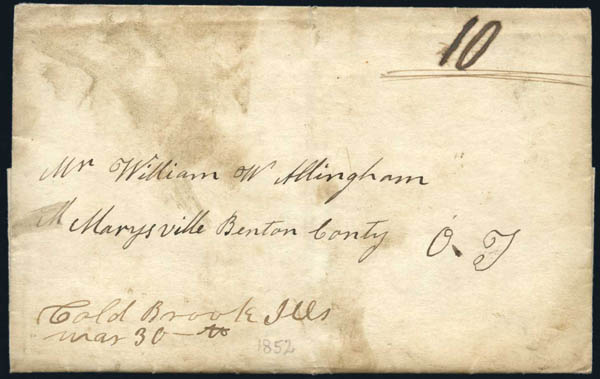 10
Mr William W Allingham
Marysville Benton Conty O. T
Cold Brook Ills
Mar 30th
1852